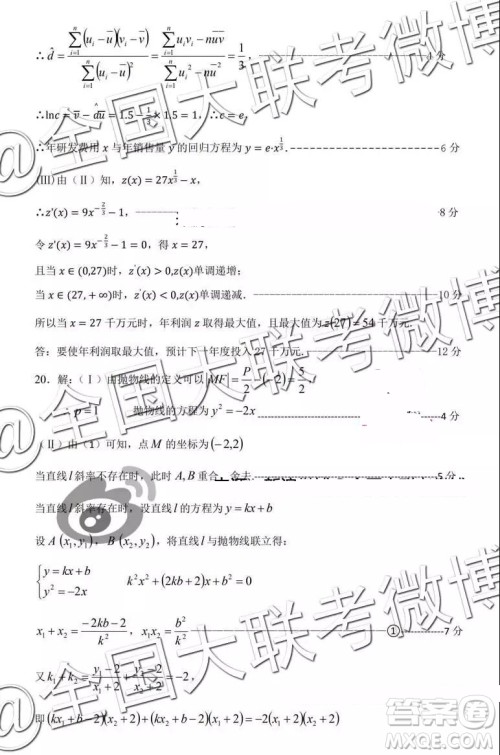 ∴d̂ = ∑ᵢ₌₁ⁿ(uᵢ−ū)(vᵢ−v̄) / ∑ᵢ₌₁ⁿ(uᵢ−ū)² = (∑ᵢ₌₁ⁿuᵢvᵢ−nūv̄) / (∑ᵢ₌₁ⁿuᵢ²−nū²) = 1/3, 分
∴lnc = v̄ − d̂ū = 1.5 − ×1.5 = 1, ∴c = e,
∴年研发费用 x 与年销售量 y 的回归方程为 y = e·x^(1/3). 6 分
(III)由(Ⅱ)知, z(x) = 27x^(1/3) − x,
∴z′(x) = 9x^(−2/3) − 1, 8 分
令 z′(x) = 9x^(−2/3) − 1 = 0, 得 x = 27,
且当 x ∈ (0,27)时, z′(x) > 0, z(x)单调递增;
当 x ∈ (27, +∞)时, z′(x) < 0, z(x)单调递减. 10 分
所以当 x = 27 千万元时, 年利润 z 取得最大值, 且最大值为 z(27) = 54 千万元.
答: 要使年利润取最大值, 预计下一年度投入 27 千万元. 12 分
20. 解: (Ⅰ)由抛物线的定义可以 |MF| = P/2 − (−2) = 5/2,
p = 1 抛物线的方程为 y² = −2x 4 分
(Ⅱ)由(1)可知, 点 M 的坐标为 (−2,2)
当直线 l 斜率不存在时, 此时 A, B 重合, 舍去. 5 分
当直线 l 斜率存在时, 设直线 l 的方程为 y = kx + b
设 A(x₁, y₁), B(x₂, y₂), 将直线 l 与抛物线联立得:
{y = kx + b
y² = −2x k²x² + (2kb + 2)x + b² = 0
x₁ + x₂ = (−2kb−2)/k², x₁x₂ = b²/k² ① 7 分
又 k₁ + k₂ = (y₁−2)/(x₁+2) + (y₂−2)/(x₂+2) = −2,
即 (kx₁ + b − 2)(x₂ + 2) + (kx₂ + b − 2)(x₁ + 2) = −2(x₁ + 2)(x₂ + 2)
@全国大联考微博
@全国大联考微博
@全国大联考微博
答案圈
MXQE.COM